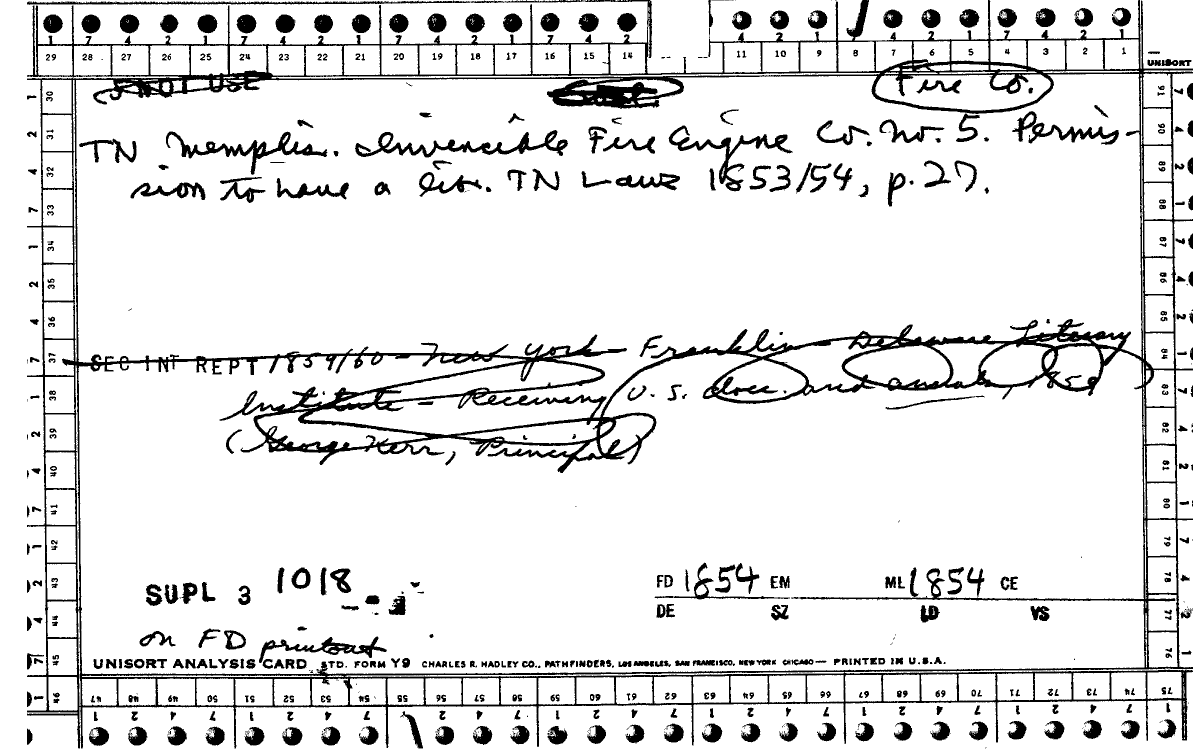 1 7 4 2 1 7 4 2 1 7 4 2 1 7 4 2 4 2 1 7 4 2 1 7 4 2 1
29 28 27 26 25 24 23 22 21 20 19 18 17 16 15 14 11 10 9 8 7 6 5 4 3 2 1
UNISORT
NOT USE Fire Co.
TN Memphis. Invincible Fire Engine Co. No. 5. Permis-
sion to have a lib. TN Laws 1853/54, p. 27.
SEC INT REPT 1859/60 - New York - Franklin - Delaware Literary
Institute - Receiving U.S. docs. and annals, 1859
(George Kerr, Principal)
SUPL 3 1018
FD 1854 EM ML 1854 CE
DE SZ LD VS
on FD printout
UNISORT ANALYSIS CARD STD. FORM Y9 CHARLES R. HADLEY CO., PATHFINDERS, LOS ANGELES, SAN FRANCISCO, NEW YORK CHICAGO — PRINTED IN U.S.A.
47 48 49 50 51 52 53 54 55 56 57 58 59 60 61 62 63 64 65 66 67 68 69 70 71 72 73 74 75